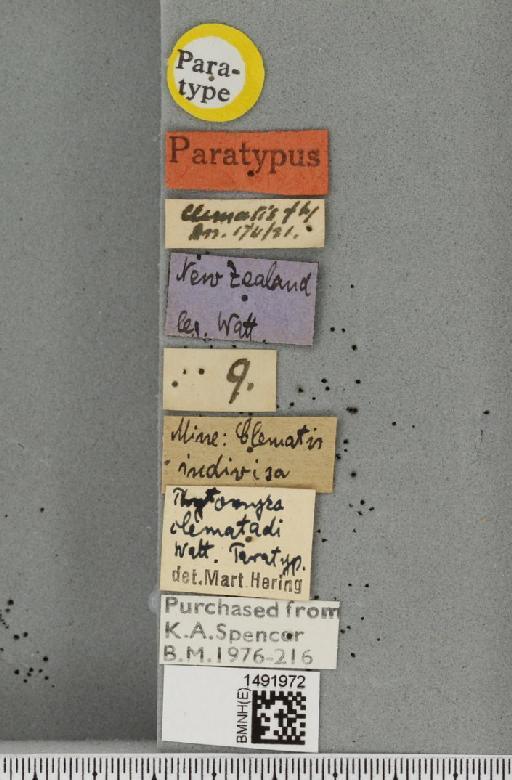 Para-
type
Paratypus
Clematis fly
Em. 1/6/21.
New Zealand
leg. Watt.
9.
Mine: Clematis
indivisa
Phytomyza
clematadi
Watt. Paratyp.
det. Mart. Hering
Purchased from
K.A.Spencer
B.M.1976-216
BMNH(E)
1491972